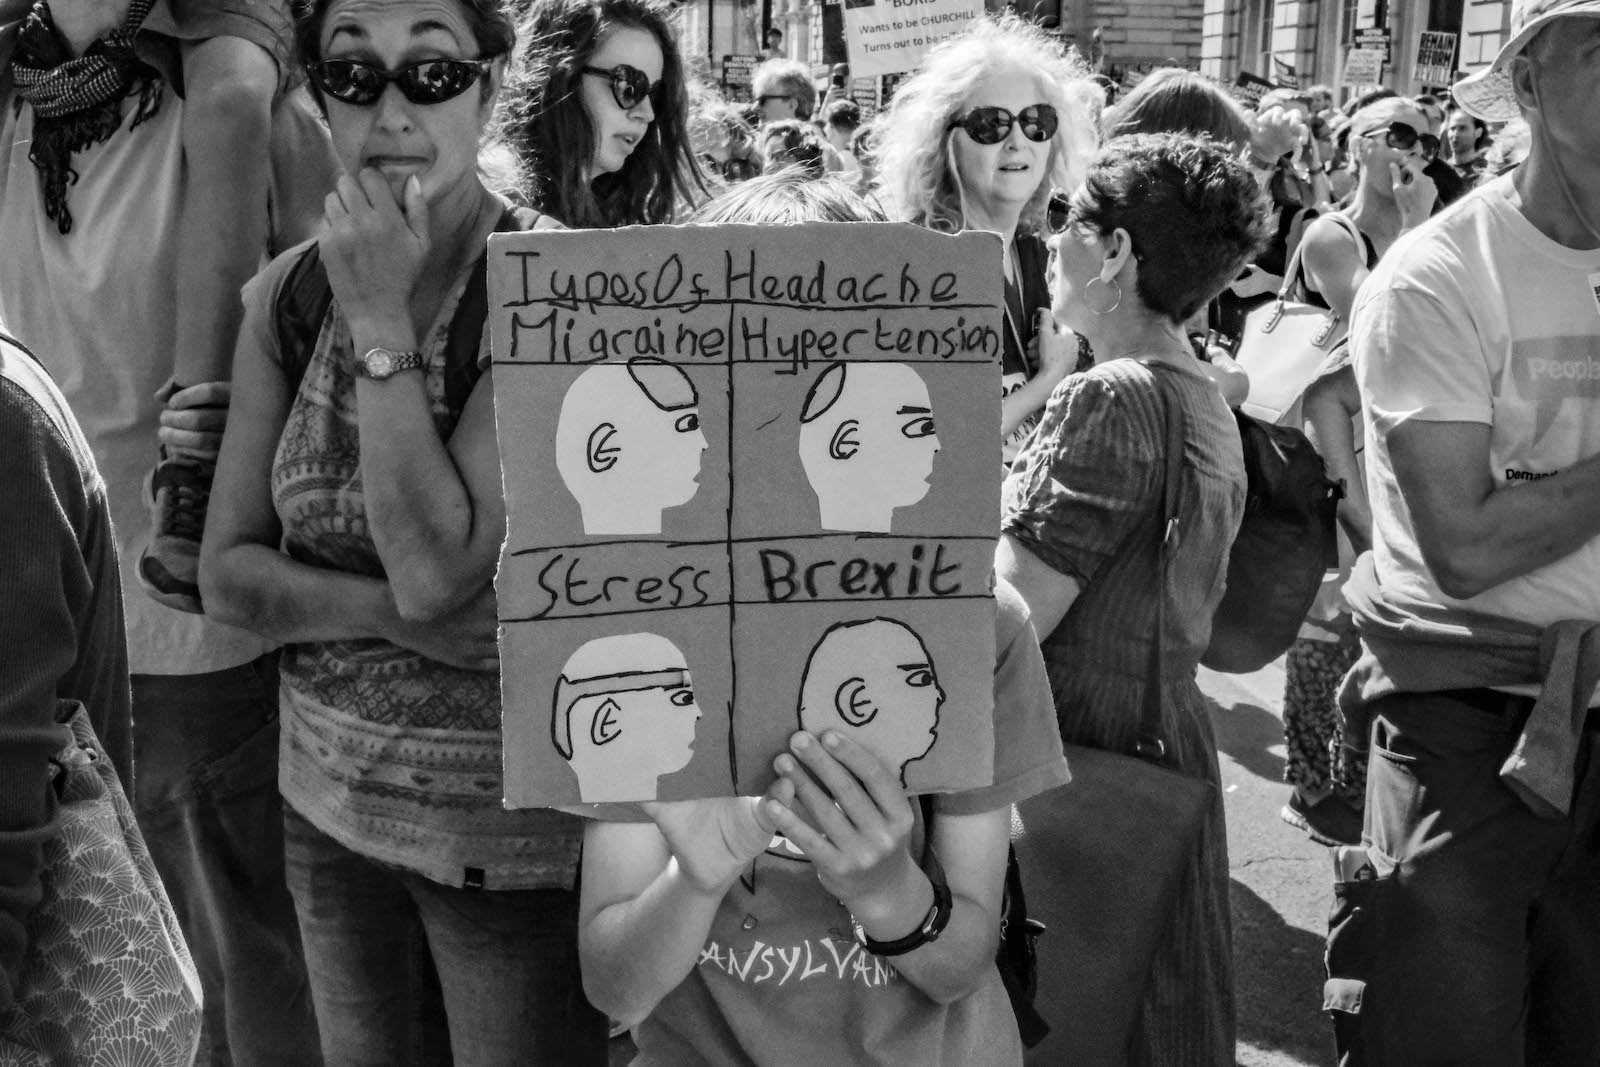 BORIS
Wants to be CHURCHILL
Turns out to be
REMAIN
REFORM
Types Of Headache
Migraine Hypertension
Stress Brexit
People
ANSYLVAN